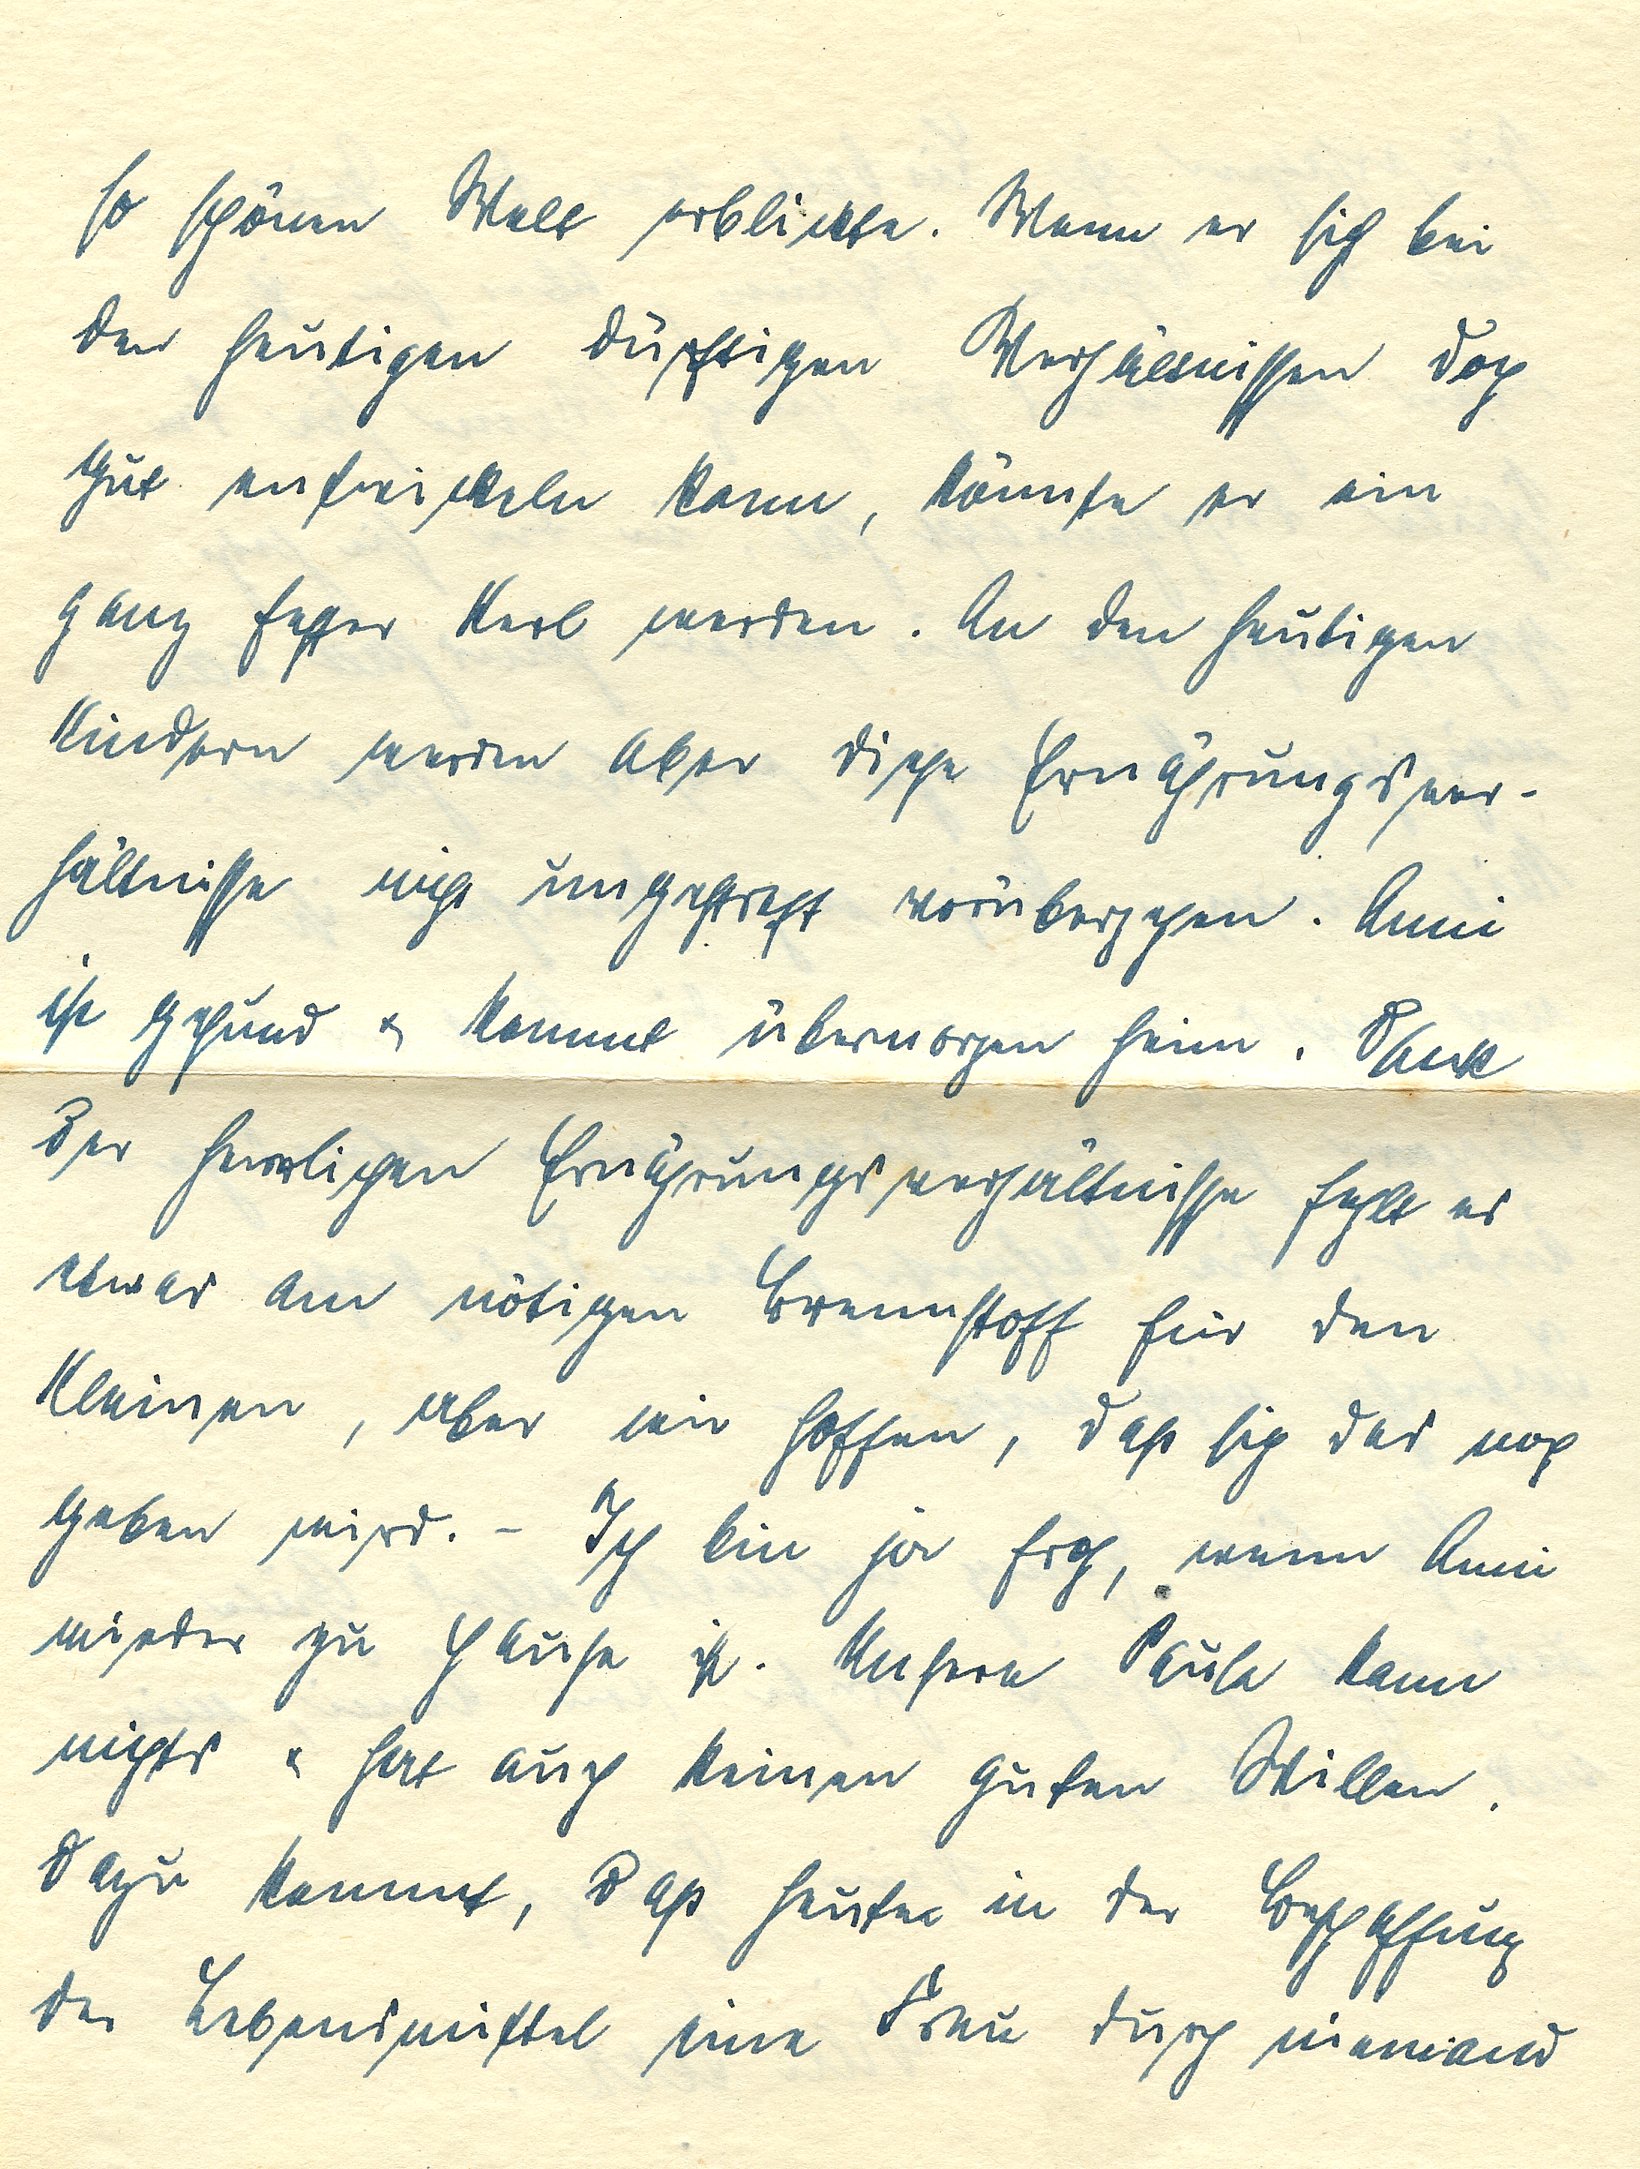 so schönen Welt erblickte. Wenn er sich bei
den heutigen dürftigen Verhältnissen doch
gut entwickeln kann, könnte er ein
ganz fester Kerl werden. An den heutigen
Kindern werden aber diese Ernährungsver-
hältnisse nicht ungestraft vorübergehen. Anni
ist gesund & kommt übermorgen heim. Dank
der herrlichen Ernährungsverhältnisse fehlt es
etwas am nötigen Brennstoff für den
Kleinen, aber wir hoffen, daß sich das noch
geben wird. - Ich bin ja froh, wenn Anni
wieder zu Hause ist. Unsere Paula kann
nichts & hat auch keinen guten Willen.
Dazu kommt, daß heute in der Beschaffung
der Lebensmittel eine Frau durch niemand